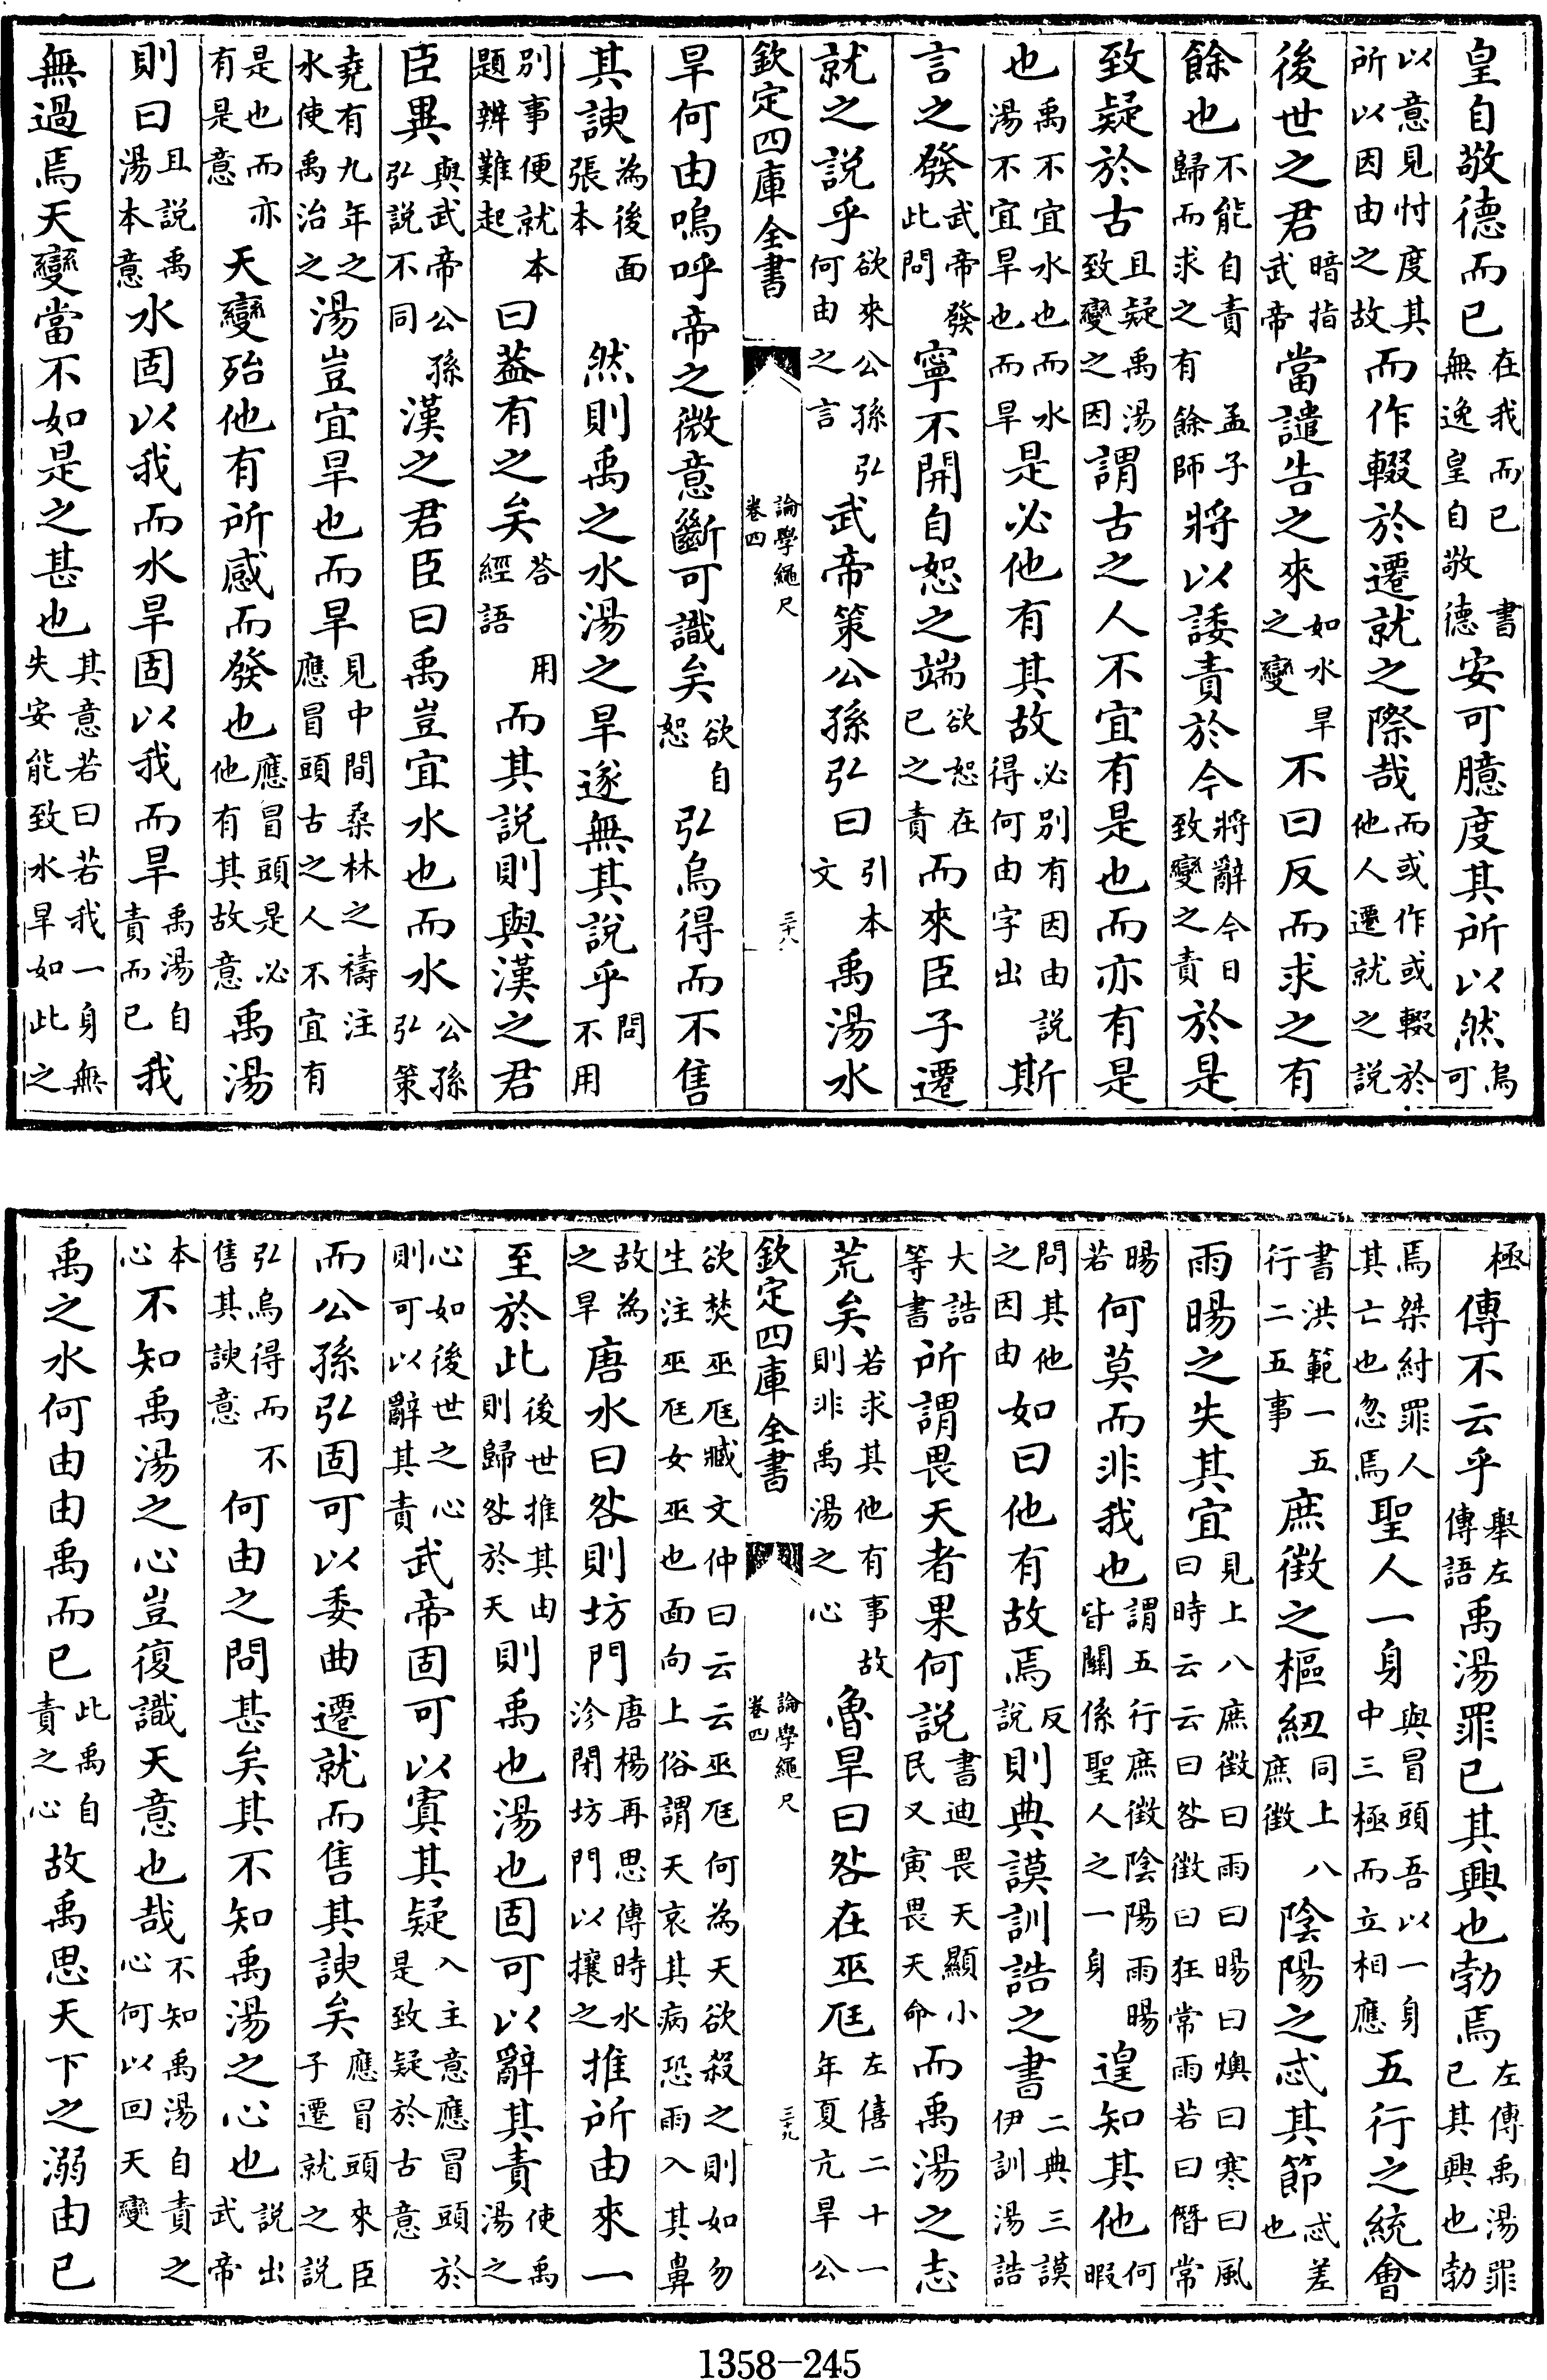 皇自敬德而已在我而已書無逸皇自敬德安可臆度其所以然烏可
以意見忖度其所以因由之故而作輟於遷就之際哉而或作或輟於他人遷就之說
後世之君暗指武帝當譴告之來如水旱之變不曰反而求之有
餘也不能自責孟子歸而求之有餘師將以諉責於今將辭今日致變之責於是
致疑於古且疑禹湯致變之因謂古之人不宜有是也而亦有是
也禹不宜水也而水湯不宜旱也而旱是必他有其故必別有因由說得何由字出斯
言之發武帝發此問寧不開自恕之端欲恕在已之責而來臣子遷
就之說乎欲來公孫弘何由之言武帝策公孫弘曰引本文禹湯水
欽定四庫全書 論學繩尺卷四 三十八
旱何由嗚呼帝之微意斷可識矣欲自恕弘烏得而不售
其諛為後面張本然則禹之水湯之旱遂無其說乎問不用
別事便就本題辨難起曰葢有之矣荅用經語而其說則與漢之君
臣異與武帝公孫弘說不同漢之君臣曰禹豈宜水也而水公孫弘策
堯有九年之水使禹治之湯豈宜旱也而旱見中間桑林之禱注應冒頭古之人不宜有
是也而亦有是意天變殆他有所感而發也應冒頭是必他有其故意禹湯
則曰且說禹湯本意水固以我而水旱固以我而旱禹湯自責而已我
無過焉天變當不如是之甚也其意若曰若我一身無失安能致水旱如此之
極傳不云乎舉左傳語禹湯罪已其興也勃焉左傳禹湯罪已其興也勃
焉桀紂罪人其亡也忽焉聖人一身與冒頭吾以一身中三極而立相應五行之統會
書洪範一五行二五事庶徵之樞紐同上八庶徵陰陽之忒其節忒差也
雨暘之失其宜見上八庶徵曰雨曰暘曰燠曰寒曰風曰時云云曰咎徵曰狂常雨若曰僭常
暘若何莫而非我也謂五行庶徵陰陽雨暘皆關係聖人之一身遑知其他何暇
問其他之因由如曰他有故焉反說則典謨訓誥之書二典三謨伊訓湯誥
大誥等書所謂畏天者果何說書迪畏天顯小民又寅畏天命而禹湯之志
荒矣若求其他有事故則非禹湯之心魯旱曰咎在巫尫左僖二十一年夏亢旱公
欽定四庫全書 論學繩尺卷四 三十九
欲焚巫尫臧文仲曰云云巫尫何為天欲殺之則如勿生注巫尫女巫也面向上俗謂天哀其病恐雨入其鼻
故為之旱唐水曰咎則坊門唐楊再思傳時水沴閉坊門以攘之推所由來一
至於此後世推其由則歸咎於天則禹也湯也固可以辭其責使禹湯之
心如後世之心則可以辭其責武帝固可以寘其疑入主意應冒頭於是致疑於古意
而公孫弘固可以委曲遷就而售其諛矣應冒頭來臣子遷就之說
弘烏得而不售其諛意何由之問甚矣其不知禹湯之心也說出武帝
本心不知禹湯之心豈復識天意也哉不知禹湯自責之心何以回天變
禹之水何由由禹而已此禹自責之心故禹思天下之溺由已
1358-245